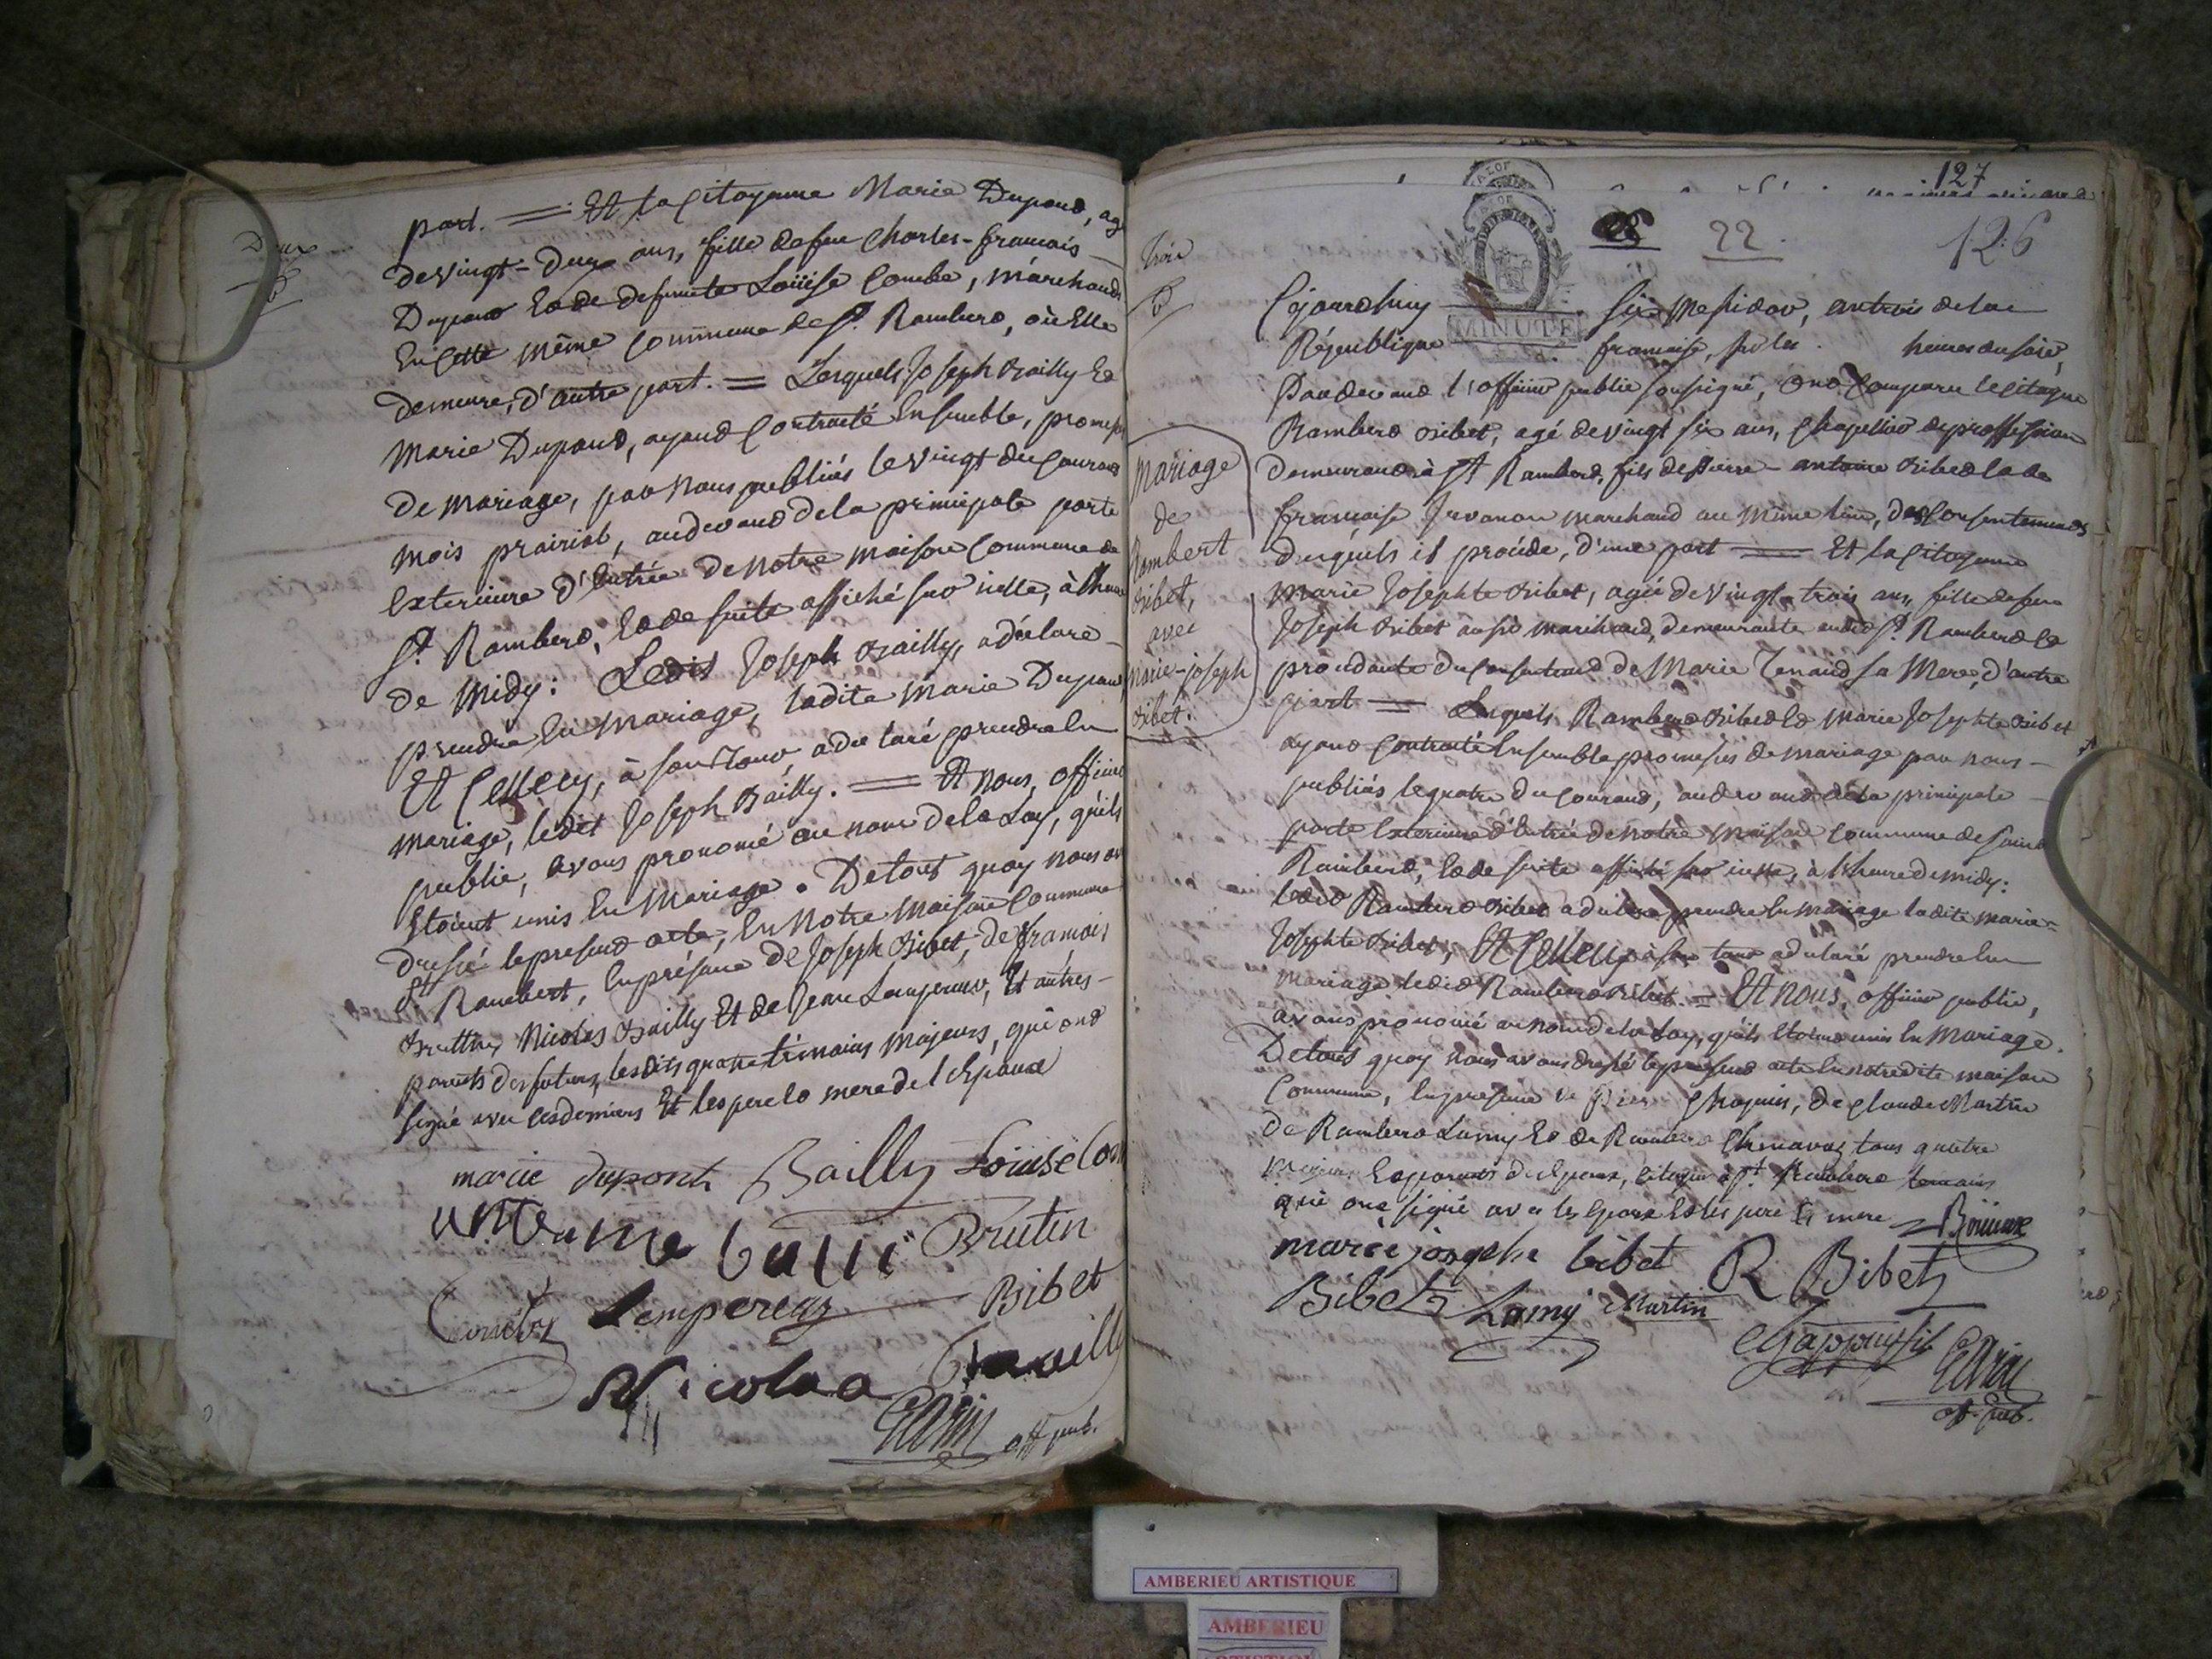 Deux
part. = Et la Citoyenne Marie Dupond, agé
de vingt-deux ans, fille de feu Charles-francois
Dupond Et de defunte Loüise Combe, marchands
En cette même Commune de St. Rambert, où Elle
demeure, d'autre part. = Lesquels Joseph Bailly Et
Marie Dupond, ayand Contracté Ensemble, promesses
de mariage, par nous publiées le vingt du Courand
mois prairial, au devand de la principale porte
Exterieure d'Entrée de Notre maison Commune de
St. Rambert, Et de suite affiché sur icelle, à l'heure
de Midy: Ledit Joseph Bailly, a déclaré
prendre En mariage, ladite Marie Dupond,
Et Cellecy, à son Tour, a déclaré prendre En
mariage, ledit Joseph Bailly. = Et nous, officier
public, avons prononcé au nom de la Loy, qu'ils
Etoient unis En Mariage. De tout quoy nous avons
dressé le presend acte, En Notre Maison Commune
St. Rambert, En présence de Joseph Bibet, de francois
Bruttin, Nicolas Bailly Et de Jean Lempereur, Et autres
parents des futurs, lesdits quatre témoins majeurs, qui ond
signé avec ces derniers Et les pere Et mere de l'Epoux
marie dupont Bailly Loüise Com
antoinne balli Brutin
Lempereur Bibet
Nicolaa Bailly
off. pub.
127
22
126
Trois
MINUTE
Cejourdhuy six Messidor, an trois de la
République francaise, sur les heures du soir,
Pardevand l'officier public soussigné, Ond Comparu le citoyen
Rambert Bibet, agé de vingt six ans, Chapellier de proffession
demeurand à St Rambert, fils de Pierre-antoine Bibet Et de
francoise Juvanon marchand au même lieu, des Consentements
desquels il procéde, d'une part = Et la Citoyenne
Marie Josephte Bibet, agée de vingt-trois ans, fille de feu
Joseph Bibet aussi marchand, demeurante audit St. Rambert Et
procédante du Consentement de Marie Tenand sa Mere, d'autre
part = Lesquels Rambert Bibet Et Marie Josephte Bibet
ayand Contracté Ensemble promesses de mariage par nous
publiés le quatre du Courand, au devand de la principale
porte Exterieure d'Entrée de Notre Maison Commune de Saint
Rambert, Et de suite affiché sur icelle, à l'heure de midy:
Ledit Rambert Bibet a déclaré prendre En mariage ladite Marie
Josephte Bibet, Et Cellecy à son tour a déclaré prendre En
mariage ledit Rambert Bibet. = Et Nous, officier public,
avons prononcé au nom de la Loy, qu'ils Etoient unis En Mariage.
De tout quoy nous avons dressé le presend acte En notredite maison
Commune, En presence de Chapuis, de Claude Martin
de Rambert Lamy Et de Rambert tous quatre
majeurs Et parents citoyens à St. Rambert temoins
qui ond signé avec les Epoux Et les pere Et mere
Mariage
de
Rambert
Bibet,
avec
Marie-joseph
Bibet.
marie josephe bibet R Bibet
Bibet Lamy Martin
Chappuis fils
off. pub.
AMBERIEU ARTISTIQUE
AMBERIEU
ARTISTIQUE